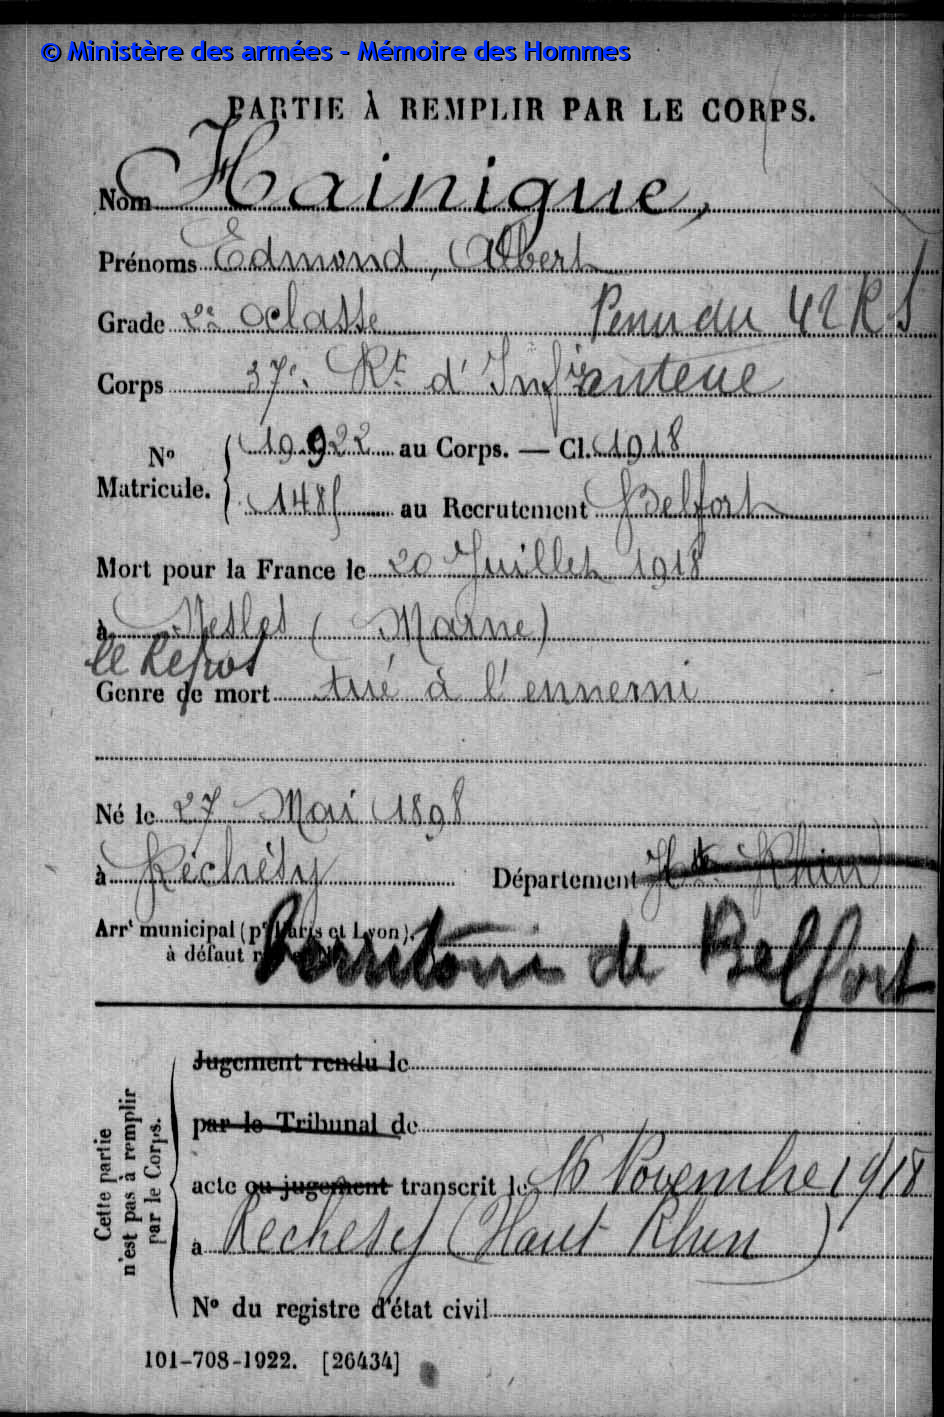 © Ministère des armées - Mémoire des Hommes
PARTIE À REMPLIR PAR LE CORPS.
Nom Hainigue,
Prénoms Edmond, Albert
Grade 2e Classe Venu du 42 R I
Corps 37e Rt d'Infanterie
No Matricule. 19.922 au Corps. — Cl. 1918
1485 au Recrutement Belfort
Mort pour la France le 20 Juillet 1918
à Nesles (Marne)
le Repos
Genre de mort tué à l'ennemi
Né le 27 Mai 1898
à Réchésy Département Hte Rhin
Arrt municipal (pr Paris et Lyon),
à défaut
Territoire de Belfort
Cette partie n'est pas à remplir par le Corps.
Jugement rendu le
par le Tribunal de
acte ou jugement transcrit le 16 Novembre 1918
à Rechesy (Haut Rhin)
No du registre d'état civil
101-708-1922. [26434]